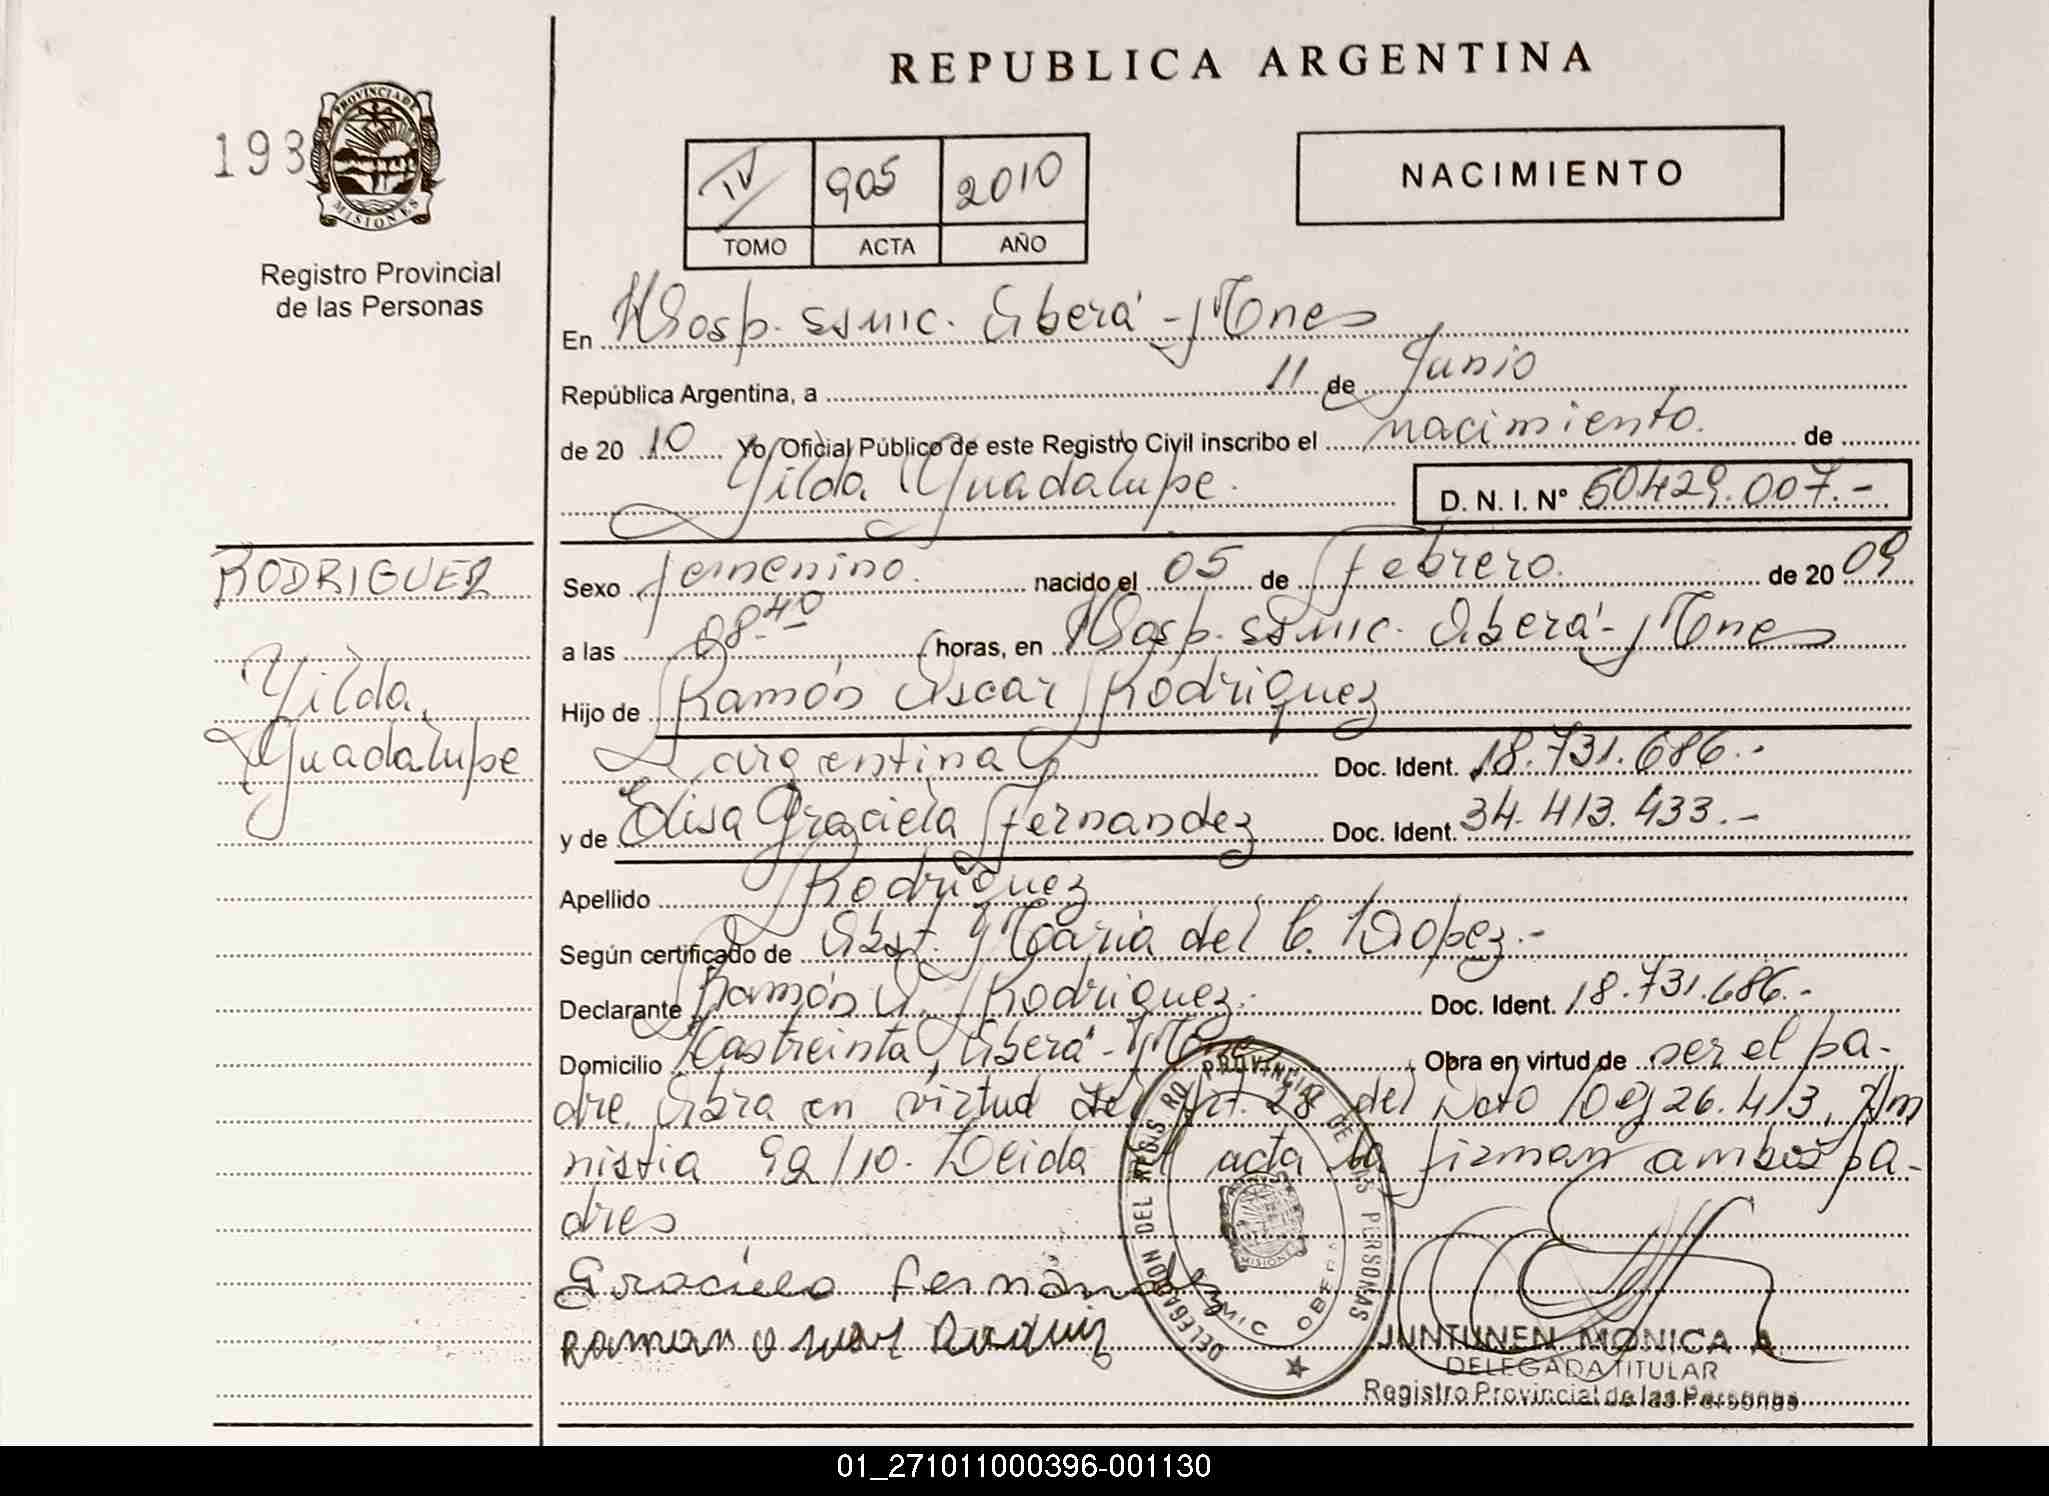 REPUBLICA ARGENTINA
193
PROVINCIA DE
MISIONES
Registro Provincial
de las Personas
IV 905 2010
TOMO ACTA AÑO
NACIMIENTO
En Hosp. SSMIC. Oberá - Mnes
República Argentina, a 11 de Junio
de 2010 Yo Oficial Público de este Registro Civil inscribo el nacimiento. de
Yilda Guadalupe.
D. N. I. Nº 50.429.007.-
RODRIGUEZ
Yilda
Guadalupe
Sexo femenino. nacido el 05 de Febrero. de 2009
a las 08.40 horas, en Hosp. SSMIC. Oberá - Mnes
Hijo de Ramón Oscar Rodriguez
argentina Doc. Ident. 18.731.686.-
y de Elisa Graciela Fernandez Doc. Ident. 34.413.433.-
Apellido Rodriguez
Según certificado de Obst. Maria del C. Lopez.-
Declarante Ramón O. Rodriguez. Doc. Ident. 18.731.686.-
Domicilio Oberá - Mnes Obra en virtud de ser el pa-
dre. Obra en virtud del Art. 28 del Dcto Leg 26.413. Am
nistia 92/10. Leida el acta la firman ambos pa-
dres
Graciela Fernandez
Ramon Oscar
DELEGACION DEL REGISTRO PROVINCIAL DE LAS PERSONAS
MISIONES
OBERA
JUNTUNEN MONICA A.
DELEGADA TITULAR
Registro Provincial de las Personas
01_271011000396-001130